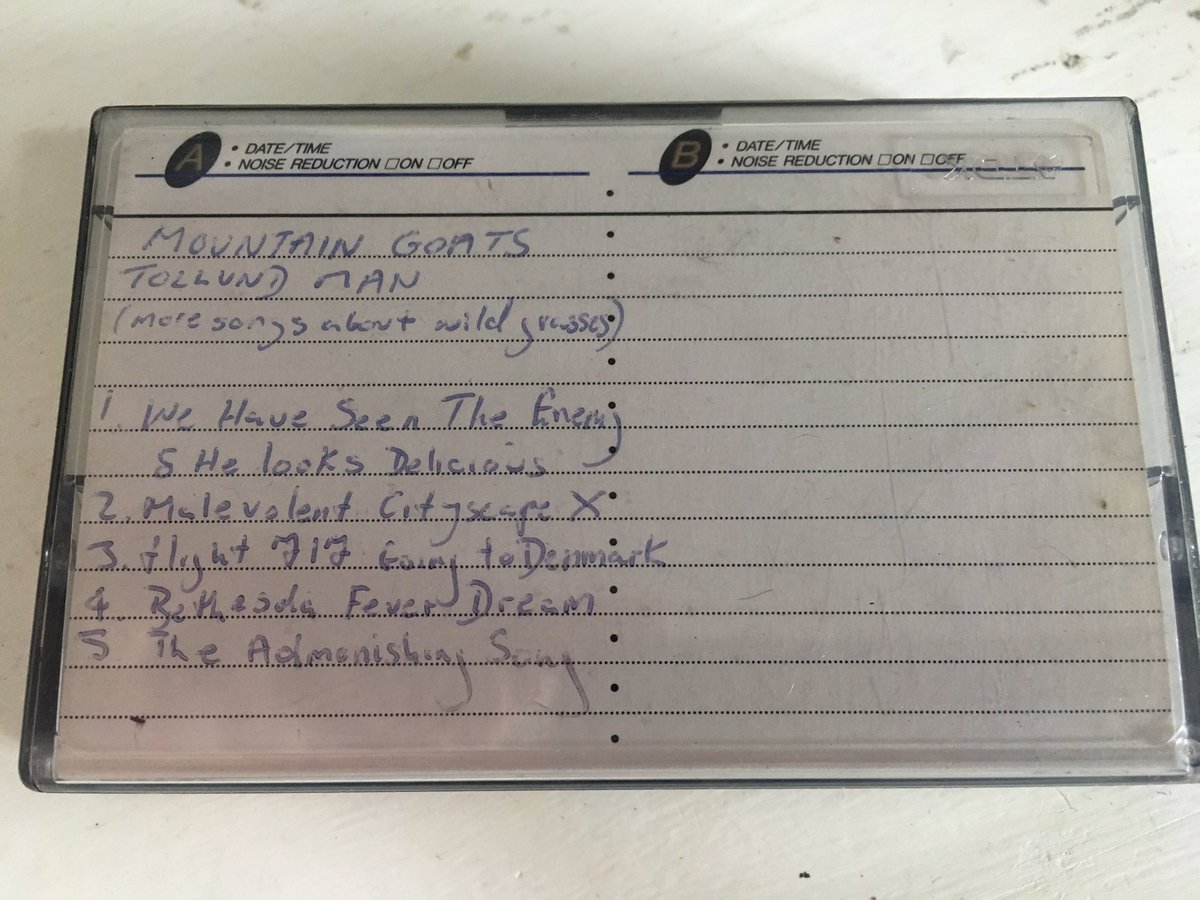 A • DATE/TIME
• NOISE REDUCTION □ON □OFF
B • DATE/TIME
• NOISE REDUCTION □ON □OFF
MOUNTAIN GOATS
TOLLUND MAN
(more songs about wild grasses)
1. We Have Seen The Enemy
& He looks Delicious
2. Malevolent Cityscape X
3. flight 717 Going to Denmark
4. Bethesda Fever Dream
5 The Admonishing Song